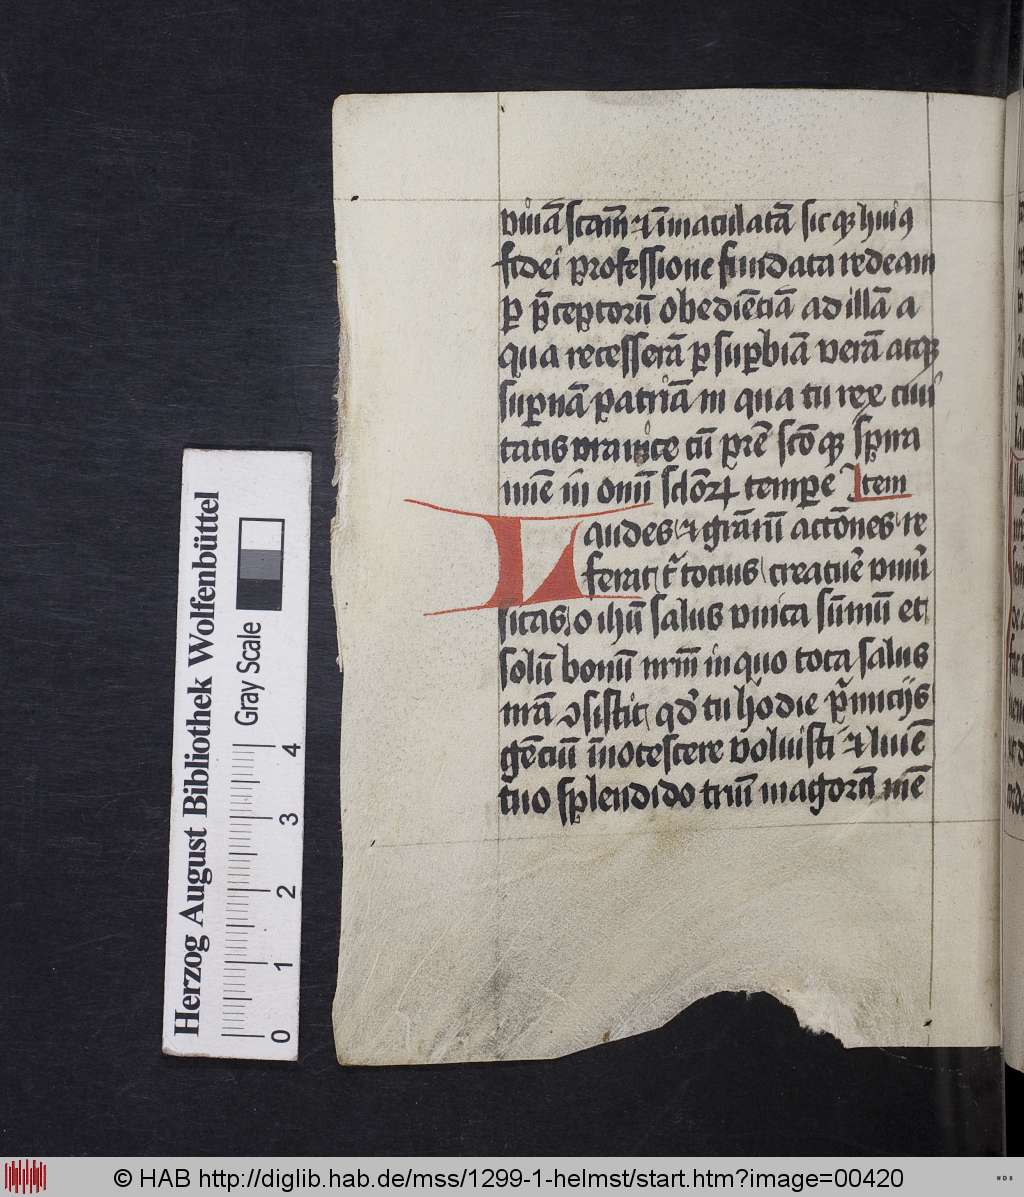 viuā scam̄ ⁊ īmaculatā sicqꝫ huiꝯ
fidei professione fundata redeam
ꝑ p̄ceptorū obediēciā ad illā a
qua recesserā ꝑ suꝑbiā verā atqꝫ
suꝑnā patriā in qua tu rex ciui
tatis cū pre scōqꝫ spira
mīe in om̄i sclōꝝ temꝑe Item
Laudes ⁊ grārū actōnes re
ferat tͥ tocius creature vniuͥ
sitas o ihū salus vnica sūmū et
solū bonū nrm̄ in quo tota salus
nrā ꝯsistit qd̓ tu hodie pͥmicijs
gēciū īnotescere voluisti ⁊ lumīe
tuo splendido triū magorū mē
Herzog August Bibliothek Wolfenbüttel
Gray Scale
0 1 2 3 4
© HAB http://diglib.hab.de/mss/1299-1-helmst/start.htm?image=00420